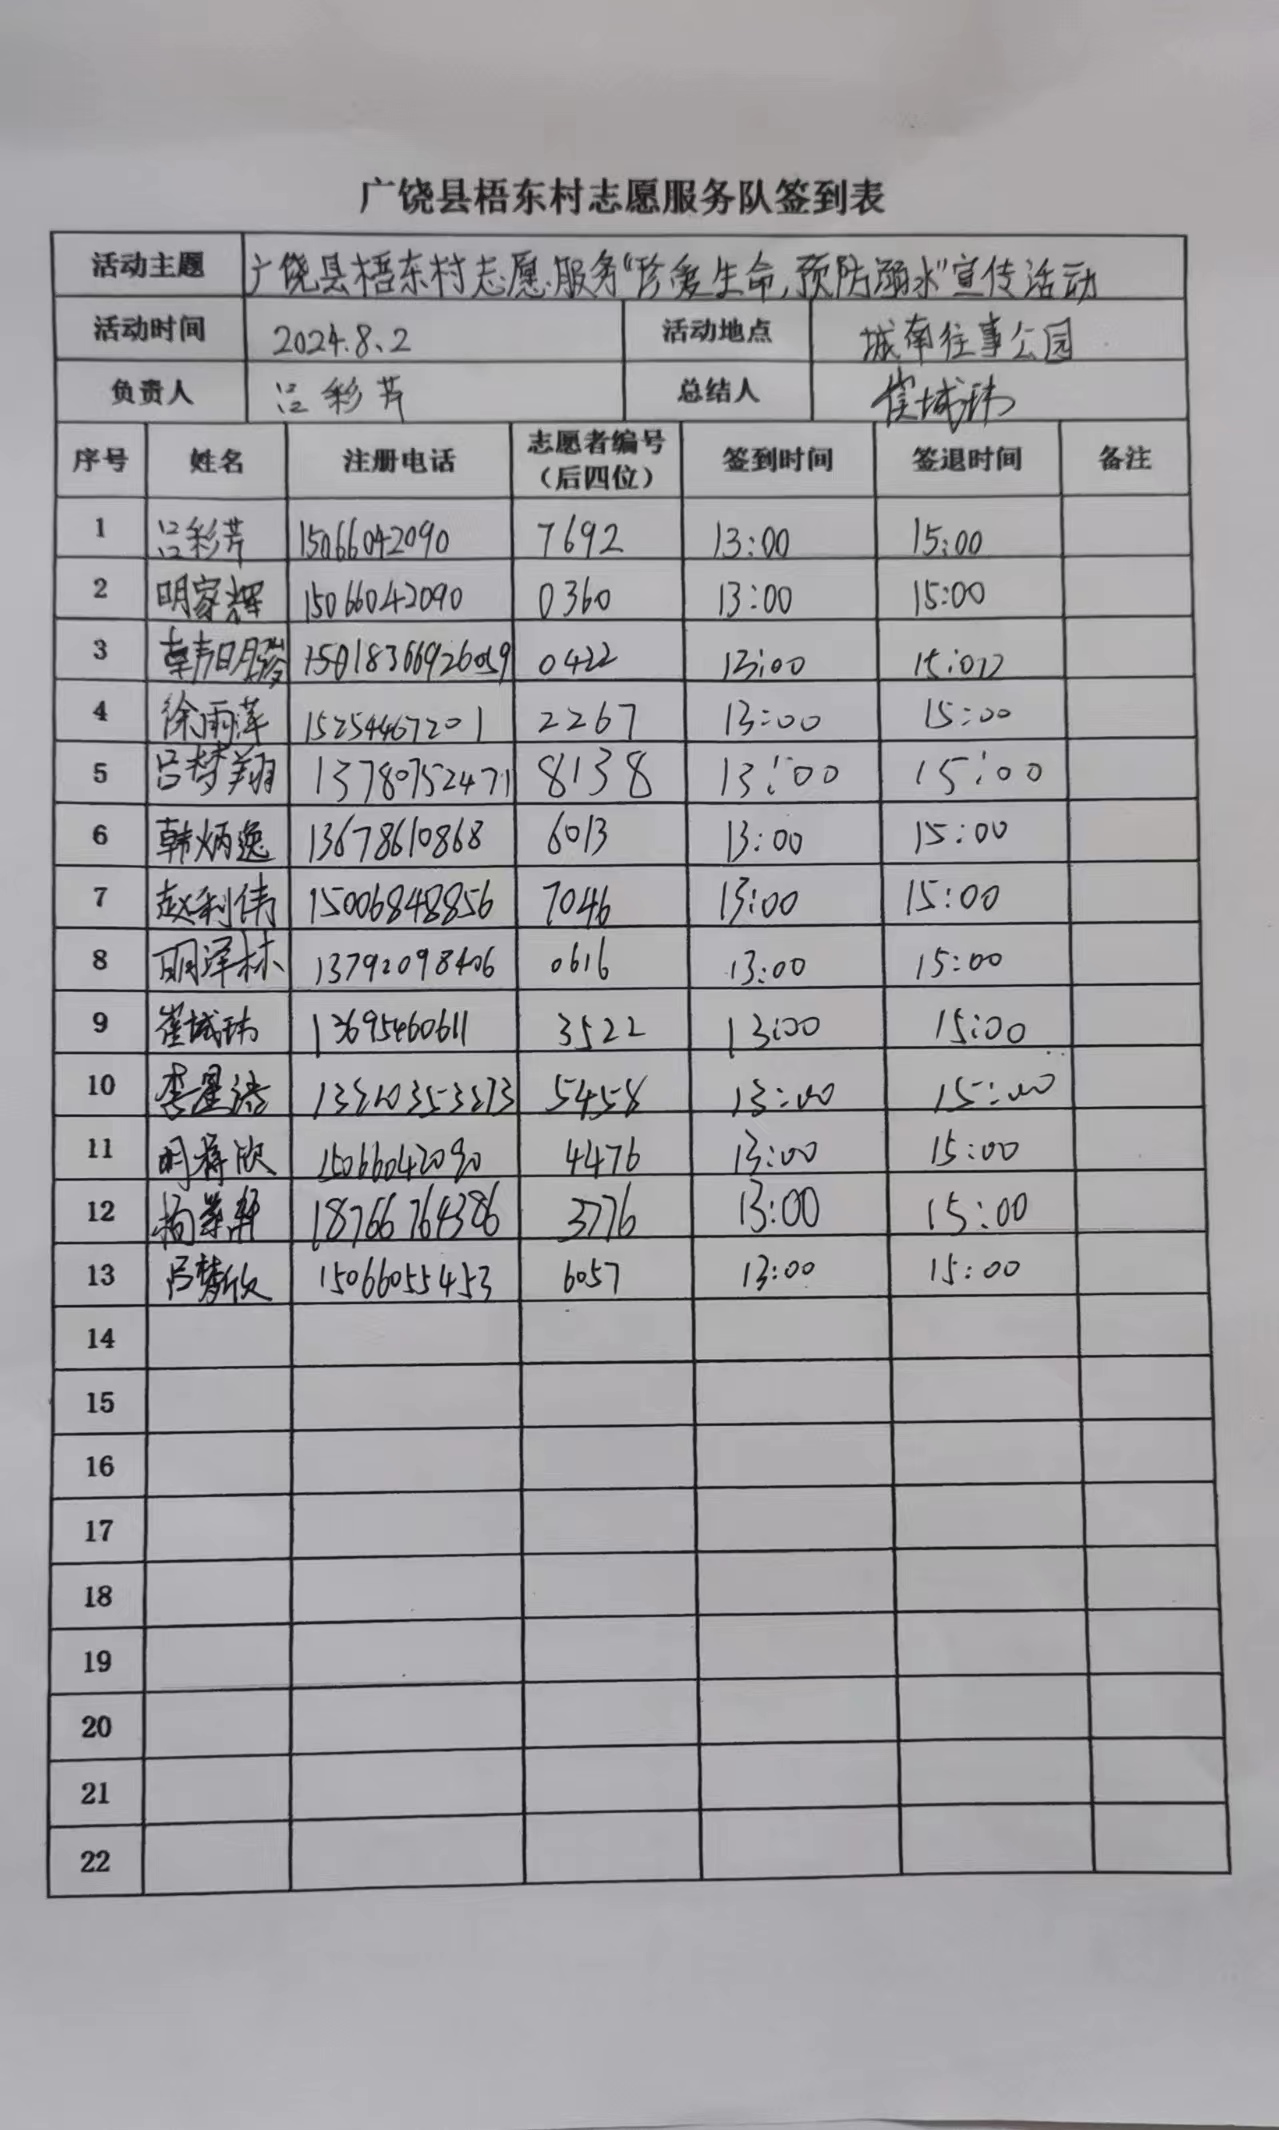 广饶县梧东村志愿服务队签到表
活动主题 广饶县梧东村志愿服务“珍爱生命,预防溺水”宣传活动
活动时间 2024.8.2 活动地点 城南往事公园
负责人 吕彩芹 总结人 崔城玮
序号 姓名 注册电话 志愿者编号 签到时间 签退时间 备注
（后四位）
1 吕彩芹 15066042090 7692 13:00 15:00
2 明家辉 15066042090 0360 13:00 15:00
3 韩明 0422 13:00 15:00
4 徐雨萍 15254467201 2267 13:00 15:00
5 吕梦翔 13780752471 8138 13:00 15:00
6 韩炳逸 13678610868 6013 13:00 15:00
7 赵利伟 15006848856 7046 13:00 15:00
8 明泽林 13792098406 0616 13:00 15:00
9 崔城玮 13695460611 3522 13:00 15:00
10 李星 5458 13:00 15:00
11 明 欣 15066042090 4476 13:00 15:00
12 杨 18766764386 3776 13:00 15:00
13 吕梦欣 15066055453 6057 13:00 15:00
14
15
16
17
18
19
20
21
22